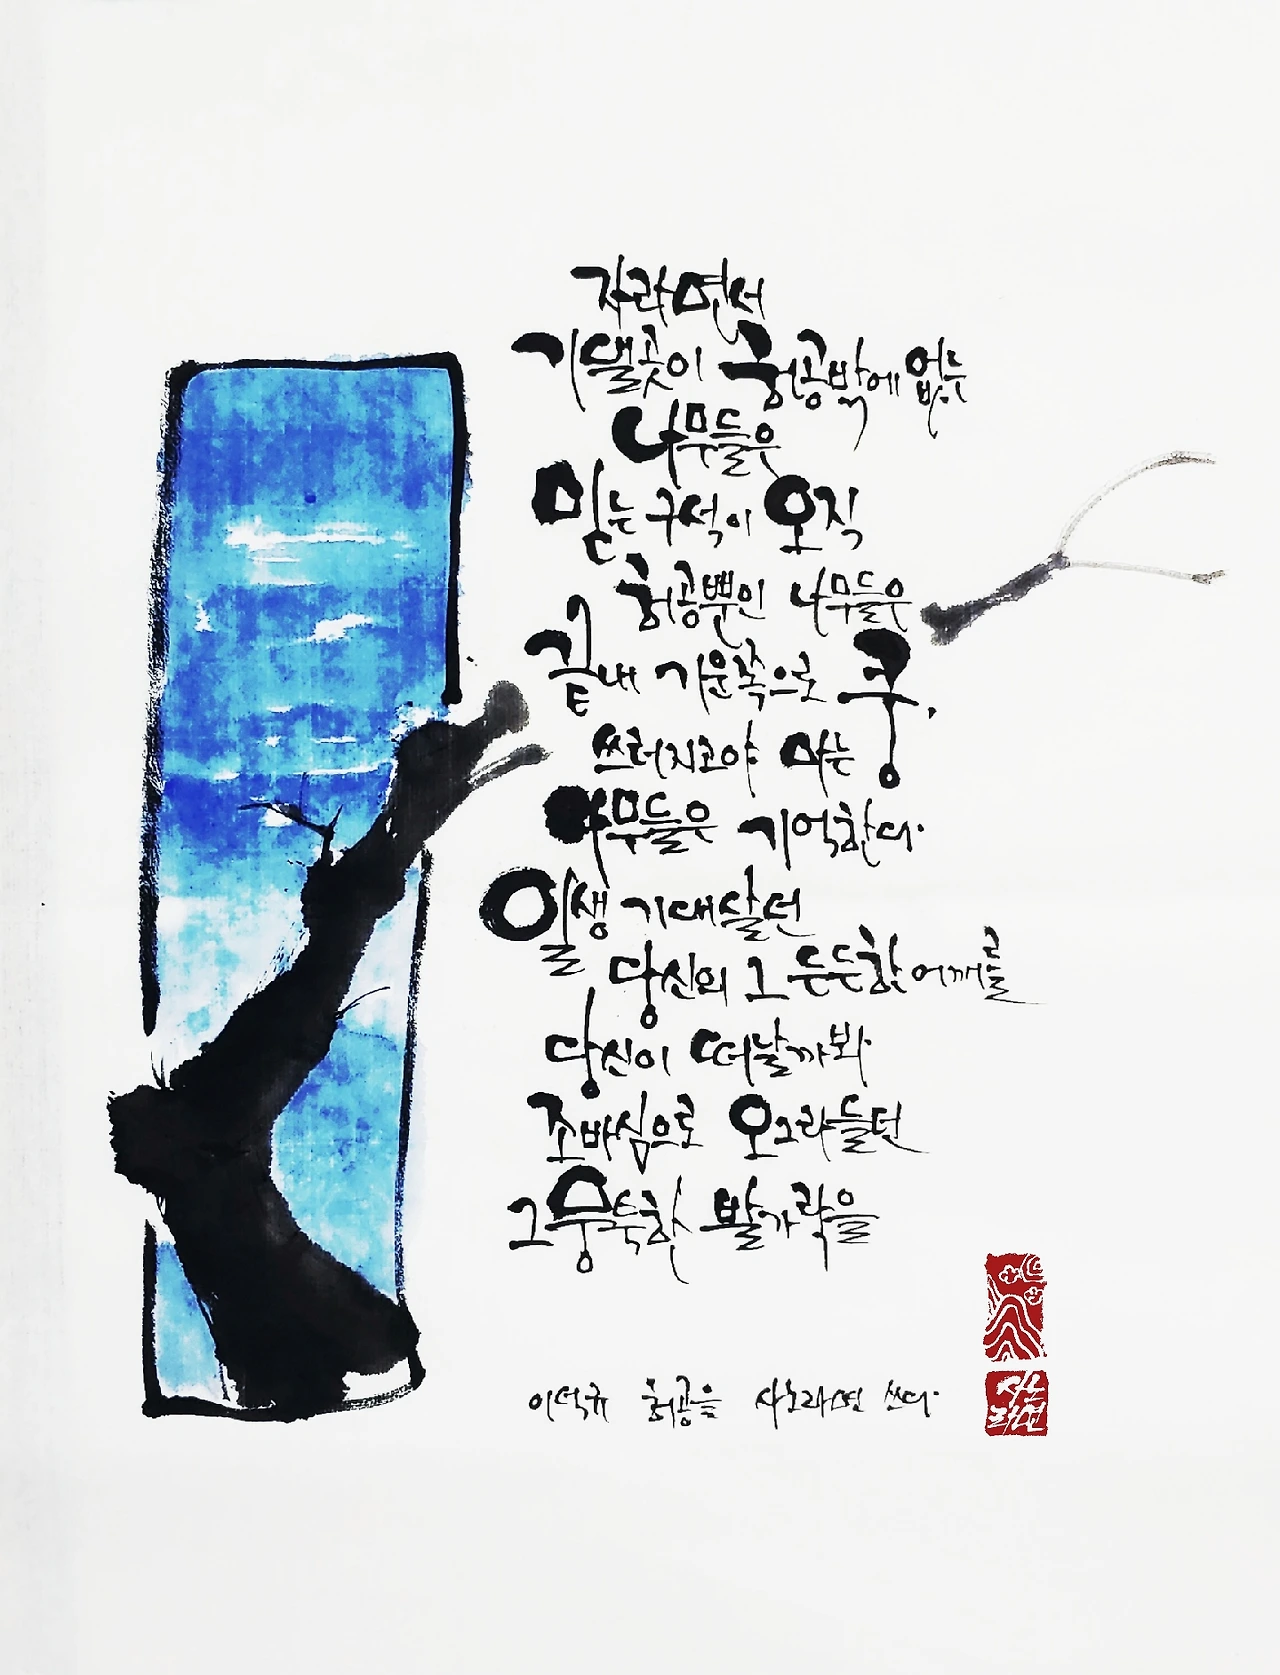 자라면서
기댈곳이 허공밖에 없는
나무들은
믿는 구석이 오직
허공뿐인 나무들은
끝내 기운쪽으로 쿵,
쓰러지고야 마는
나무들은 기억한다.
일생 기대살던
당신의 그 든든한 어깨를
당신이 떠날까봐
조바심으로 오그라들던
그 뭉툭한 발가락을
이덕규 허공을 사노라면 쓰다.
사노
라면